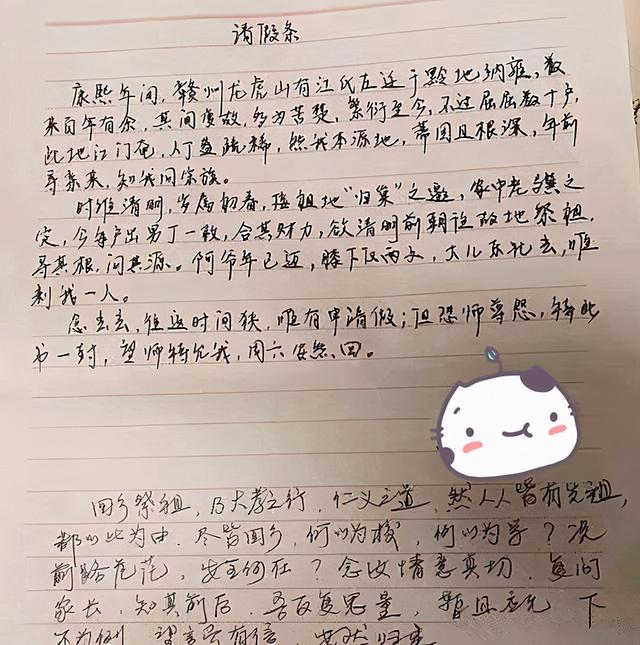 请假条
康熙年间，赣州龙虎山有江氏左迁于黔地纳雍，数
来百年有余，其间变故，多为苦楚，繁衍至今，不过屈屈数十户，
此地江门奄，人丁益疏稀，然我本源地，蒂固且根深，年前
寻亲来，知我同宗族。
时维清明，岁属初春，接祖地“归集”之邀，家中老与集之
定，今每户出男丁一教，合其财力，欲清明前朝往故地祭祖，
寻其根，问其源。阿爷年已迈，膝下仅两文，大儿东北去，唯
剩我一人。
念去去，往返时间狭，唯有申请假；但恐师尊怨，特此
书一封，望师特允我，周六安然回。
回乡祭祖，乃大孝之行，仁义之道，然人人皆有先祖，
都以此为由，尽皆回乡，何以为校，何以为学？况
前路茫茫，安全何在？念汝情意真切，复问
家长，知其前后，吾反复思量，暂且应允 下
不为例，望言而有信，安然归来